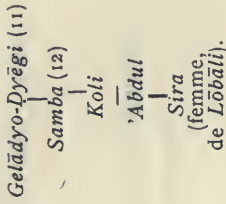 Gelādyo-Dyēgi (11)
Samba (12)
Koli
'Abdul
Sira
(femme,
de Lōbāli).